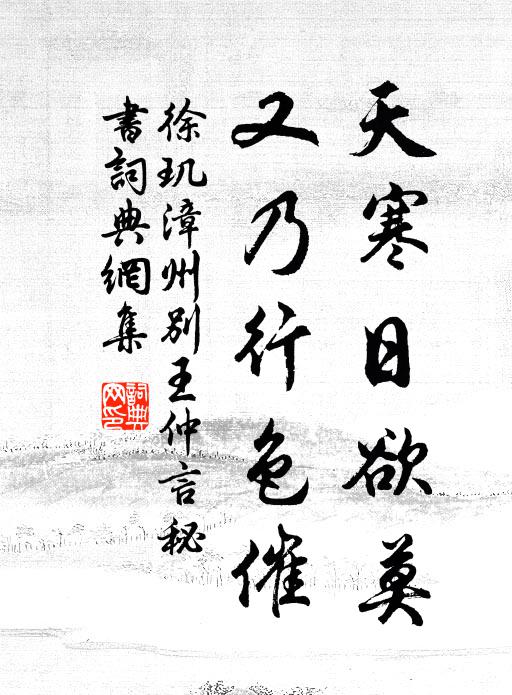 天寒日欲莫
又乃行色催
徐玑漳州别王仲言秘
書詞典網集
詞典
网印